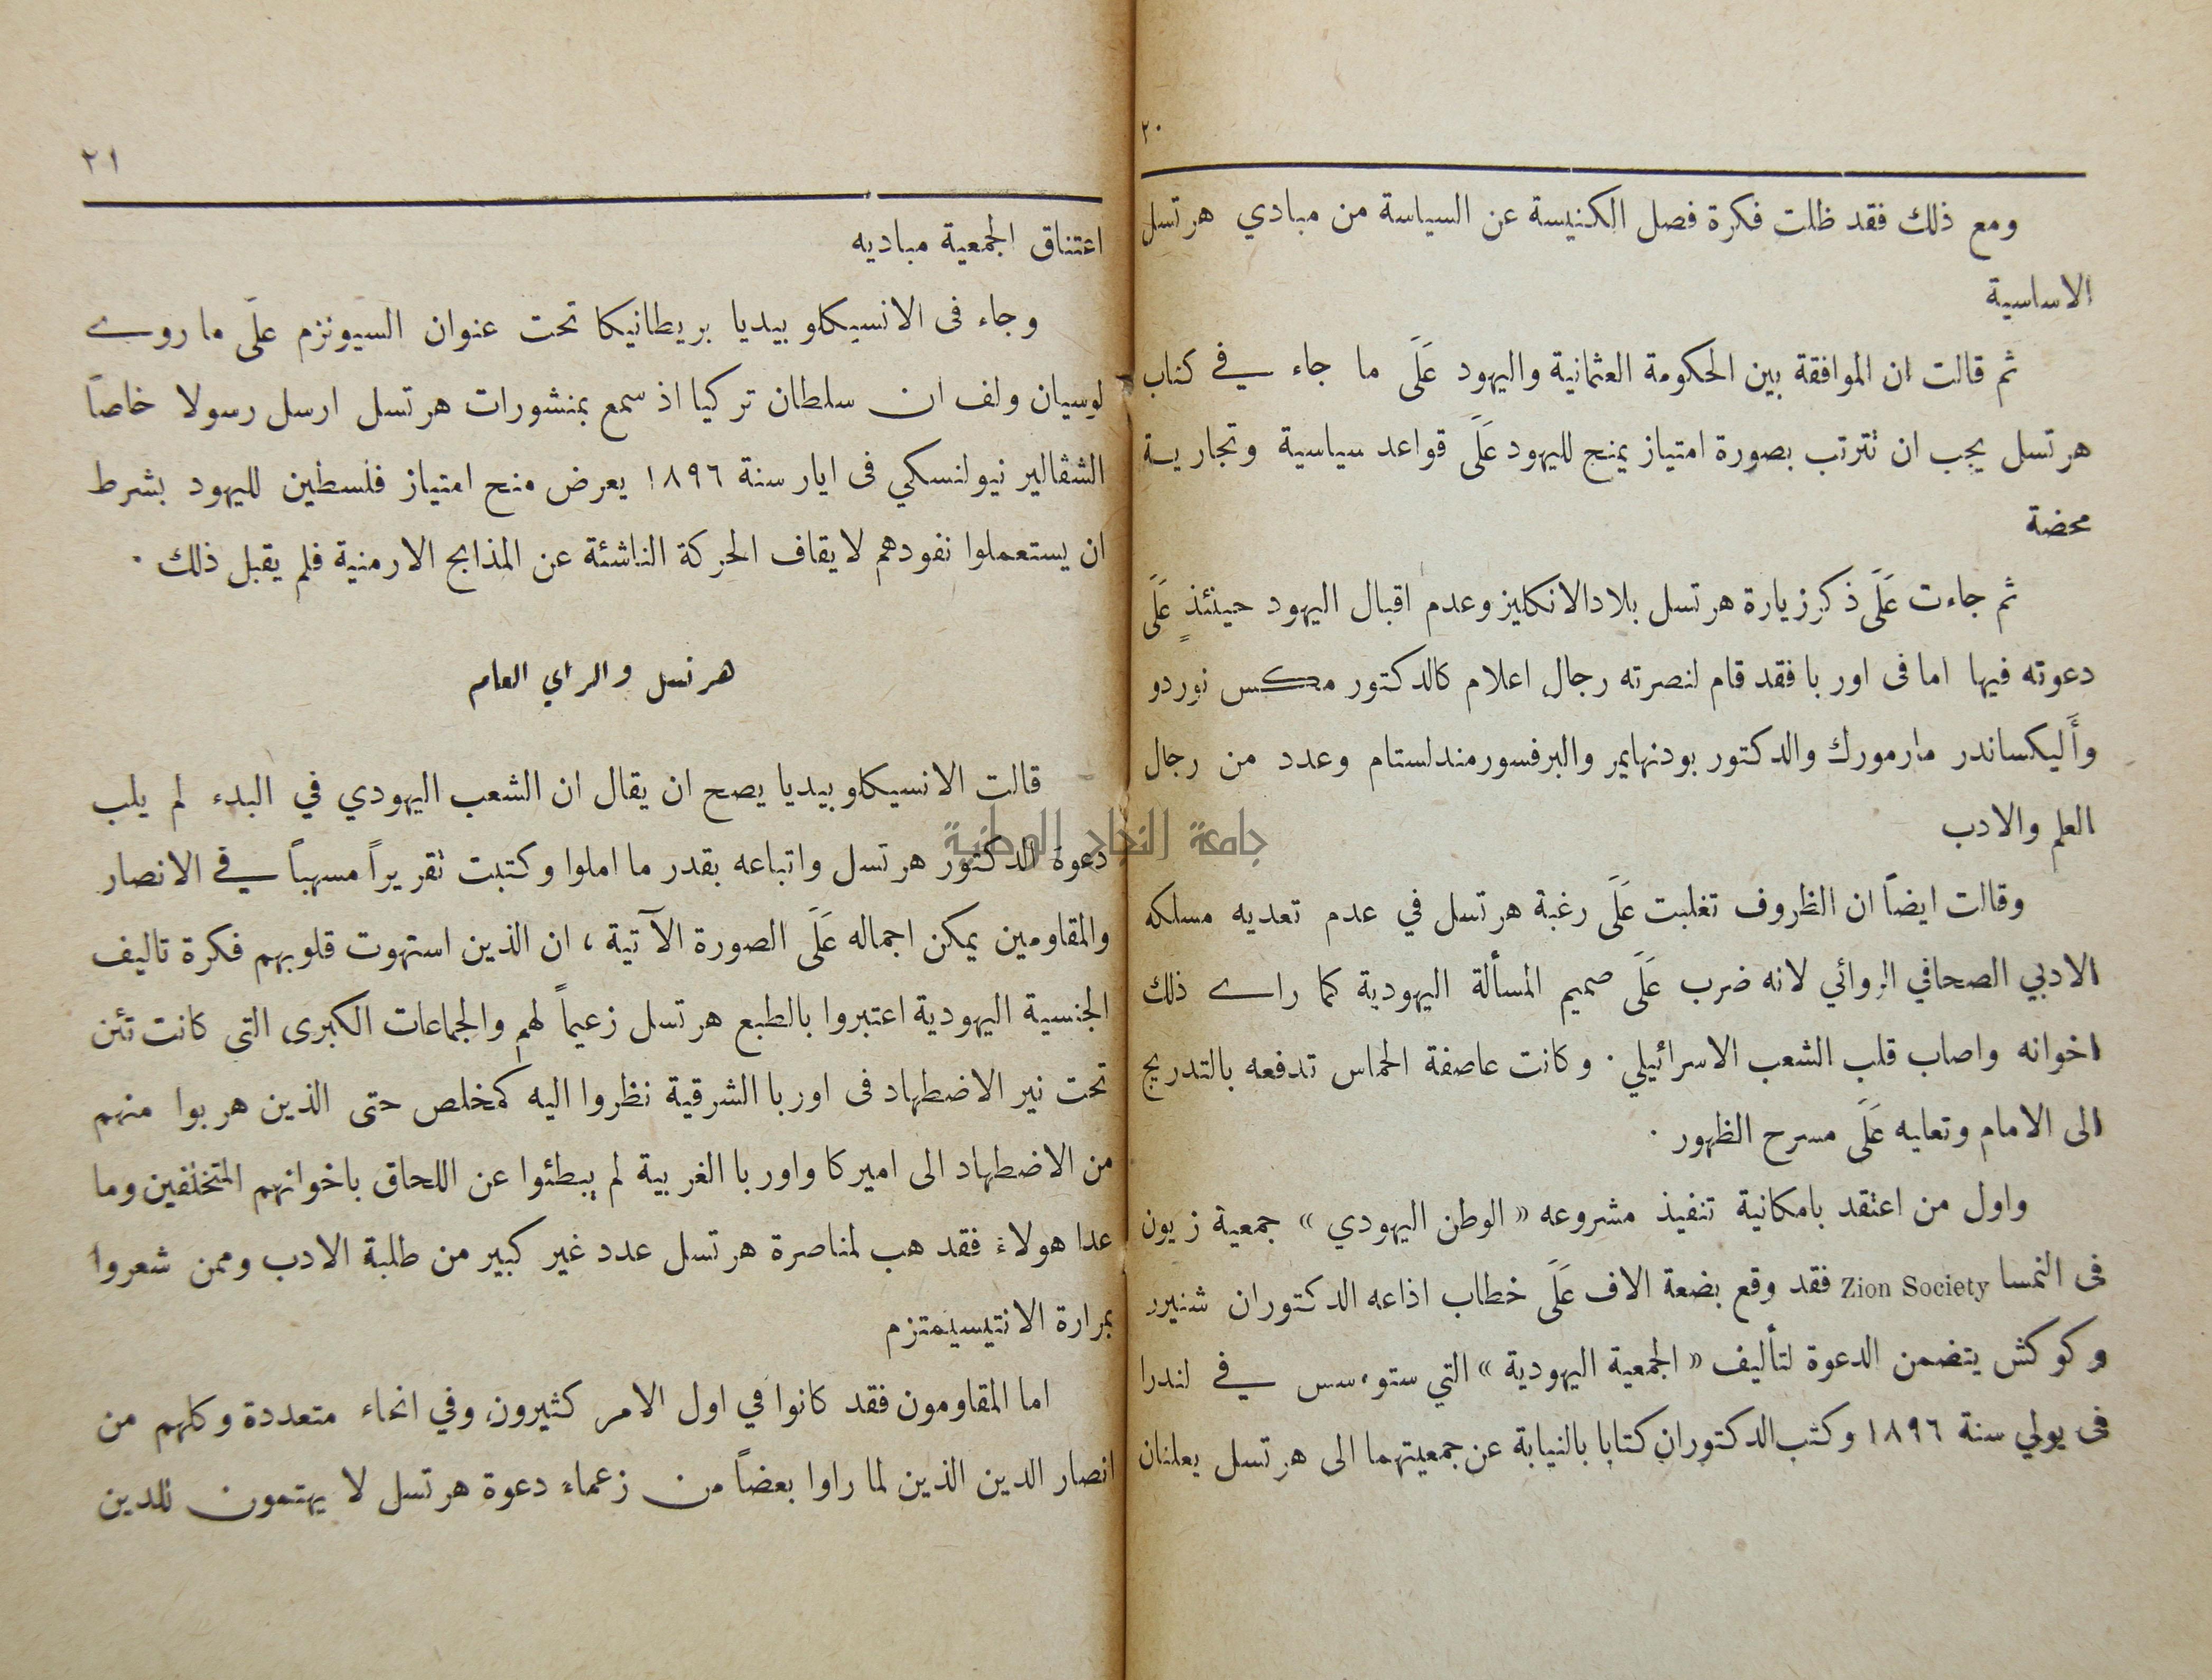 ٢٠
ومع ذلك فقد ظلت فكرة فصل الكنيسة عن السياسة من مبادي هرتسل
الاساسية
ثم قالت ان الموافقة بين الحكومة العثمانية واليهود عَلَى ما جاء في كتاب
هرتسل يجب ان تترتب بصورة امتياز يمنح لليهود عَلَى قواعد سياسية وتجارية
محضة
ثم جاءت عَلَى ذكر زيارة هرتسل بلاد الانكليز وعدم اقبال اليهود حينئذٍ عَلَى
دعوته فيها اما فى اوربا فقد قام لنصرته رجال اعلام كالدكتور مكس نوردو
وأَليكساندر مارمورك والدكتور بودنهايمر والبرفسور مندلستام وعدد من رجال
العلم والادب
وقالت ايضاً ان الظروف تغلبت عَلَى رغبة هرتسل في عدم تعديه مسلكه
الادبي الصحافي الروائي لانه ضرب عَلَى صميم المسألة اليهودية كما راى ذلك
اخوانه واصاب قلب الشعب الاسرائيلي . وكانت عاصفة الحماس تدفعه بالتدريج
الى الامام وتعليه عَلَى مسرح الظهور .
واول من اعتقد بامكانية تنفيذ مشروعه « الوطن اليهودي » جمعية زيون
فى النمسا Zion Society فقد وقع بضعة الاف عَلَى خطاب اذاعه الدكتوران شنيرر
وكوكش يتضمن الدعوة لتأليف « الجمعية اليهودية » التي ستوءسس في لندرا
فى يولي سنة ١٨٩٦ وكتب الدكتوران كتابا بالنيابة عن جمعيتهما الى هرتسل يعلنان
٢١
اعتناق الجمعية مباديه
وجاء فى الانسيكلوبيديا بريطانيكا تحت عنوان السيونزم عَلَى ما روى
لوسيان ولف ان سلطان تركيا اذ سمع بمنشورات هرتسل ارسل رسولا خاصاً
الشفالير نيولنسكي فى ايار سنة ١٨٩٦ يعرض منح امتياز فلسطين لليهود بشرط
ان يستعملوا نفودهم لايقاف الحركة الناشئة عن المذابح الارمنية فلم يقبل ذلك .
هرتسل والراي العام
قالت الانسيكلوبيديا يصح ان يقال ان الشعب اليهودي في البدء لم يلب
دعوة الدكتور هرتسل واتباعه بقدر ما املوا وكتبت تقريراً مسهباً في الانصار
والمقاومين يمكن اجماله عَلَى الصورة الآتية ، ان الذين استهوت قلوبهم فكرة تاليف
الجنسية اليهودية اعتبروا بالطبع هرتسل زعيماً لهم والجماعات الكبرى التى كانت تئن
تحت نير الاضطهاد فى اوربا الشرقية نظروا اليه كمخلص حتى الذين هربوا منهم
من الاضطهاد الى اميركا واوربا الغربية لم يبطئوا عن اللحاق باخوانهم المتخلفين وما
عدا هولاء فقد هب لمناصرة هرتسل عدد غير كبير من طلبة الادب وممن شعروا
بمرارة الانتيسيمتزم
اما المقاومون فقد كانوا في اول الامر كثيرون وفي انحاء متعددة وكلهم من
انصار الدين الذين لما راوا بعضاً من زعماء دعوة هرتسل لا يهتمون للدين
جامعة النجاح الوطنية